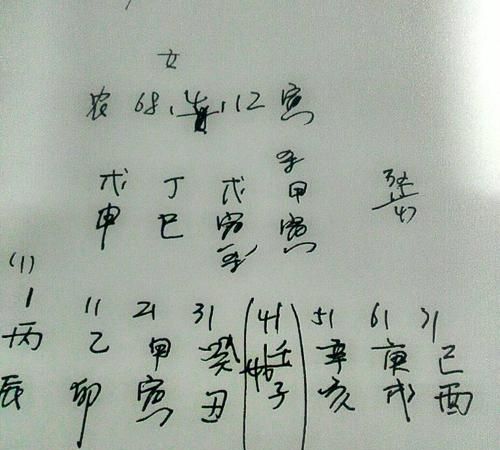 女
农 68.4.12 寅
戊 丁 戊 甲
申 巳 寅 寅
(1)
1 11 21 31 41 51 61 71
丙 乙 甲 癸 壬 辛 庚 己
辰 卯 寅 丑 子 亥 戌 酉